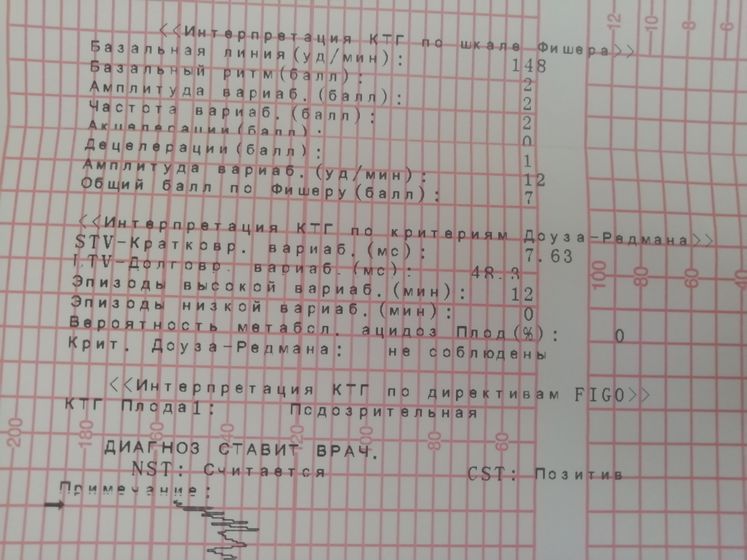 <<Интерпретация КТГ по шкале Фишера>>
Базальная линия(уд/мин): 148
Базальный ритм(балл): 2
Амплитуда вариаб.(балл): 2
Частота вариаб.(балл): 2
Акцелерации(балл): 0
Децелерации(балл): 1
Амплитуда вариаб.(уд/мин): 12
Общий балл по Фишеру(балл): 7
<<Интерпретация КТГ по критериям Доуза-Редмана>>
STV-Кратковр. вариаб.(мс): 7.63
LTV-Долговр. вариаб.(мс): 48.3
Эпизоды высокой вариаб.(мин): 12
Эпизоды низкой вариаб.(мин): 0
Вероятность метабол. ацидоз Плод(%): 0
Крит. Доуза-Редмана: не соблюдены
<<Интерпретация КТГ по директивам FIGO>>
КТГ Плода1: Подозрительная
ДИАГНОЗ СТАВИТ ВРАЧ.
NST: Считается CST: Позитив
Примечание:
200 180 160 120 100 80 60
100 80 60 40
12 10 8 6